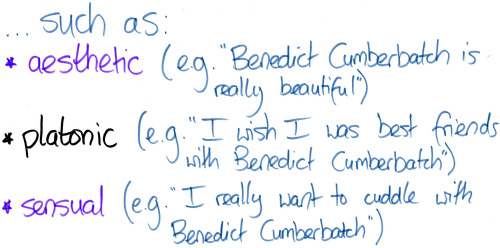 ... such as:
* aesthetic (e.g. "Benedict Cumberbatch is
really beautiful")
* platonic (e.g. "I wish I was best friends
with Benedict Cumberbatch")
* sensual (e.g. "I really want to cuddle with
Benedict Cumberbatch")